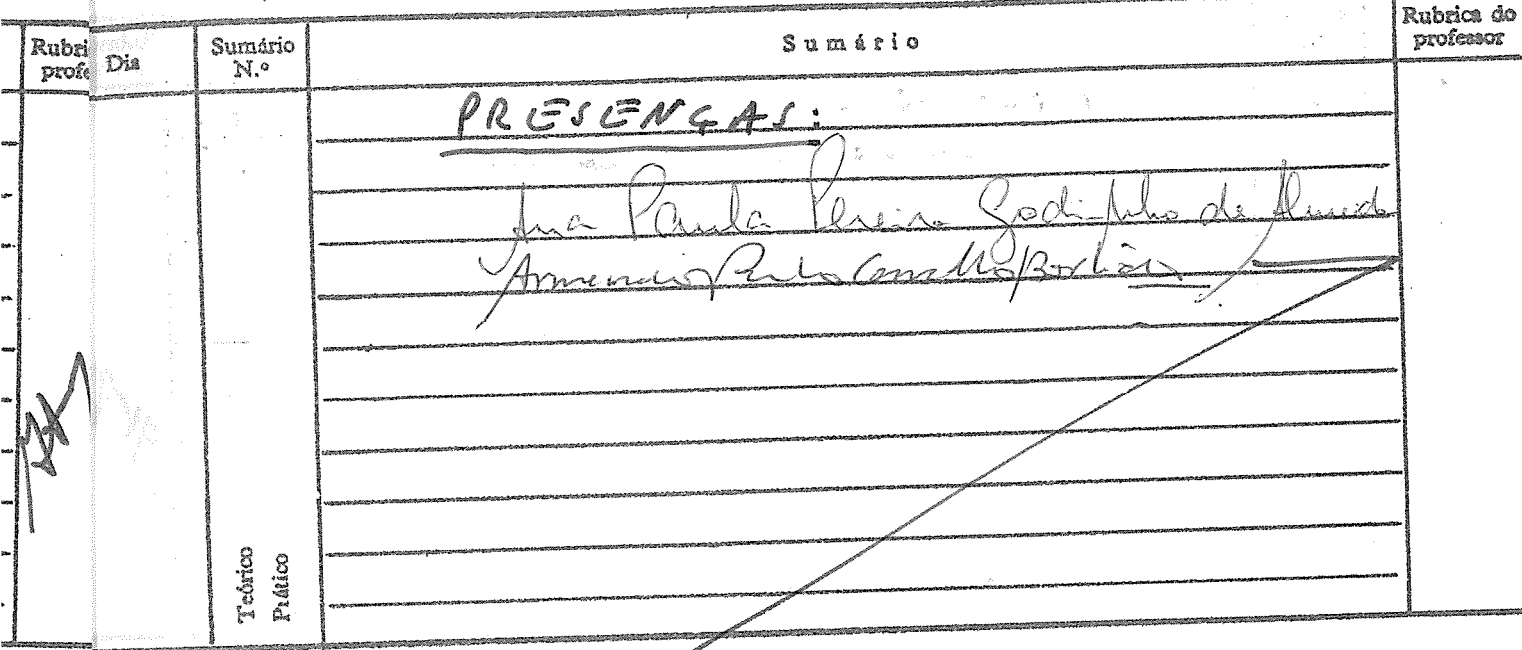 Rubri
profe
Dia
Sumário
N.º
Sumário
Rubrica do
professor
PRESENÇAS:
Ana Paula Pereira Godinho de Almeida
Paulo Carvalho
Teórico
Prático